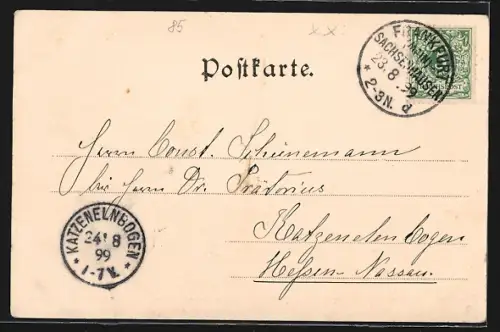 85
x x
Postkarte.
FRANKFURT
(MAIN)
SACHSENHAUSEN
23.8.99
* 2-3N. d
Herrn Const. Schünemann
bei Herrn Dr. Prätorius
Katzenelenbogen
Hessen-Nassau.
* KATZENELNBOGEN *
24 8
99
1-7V.